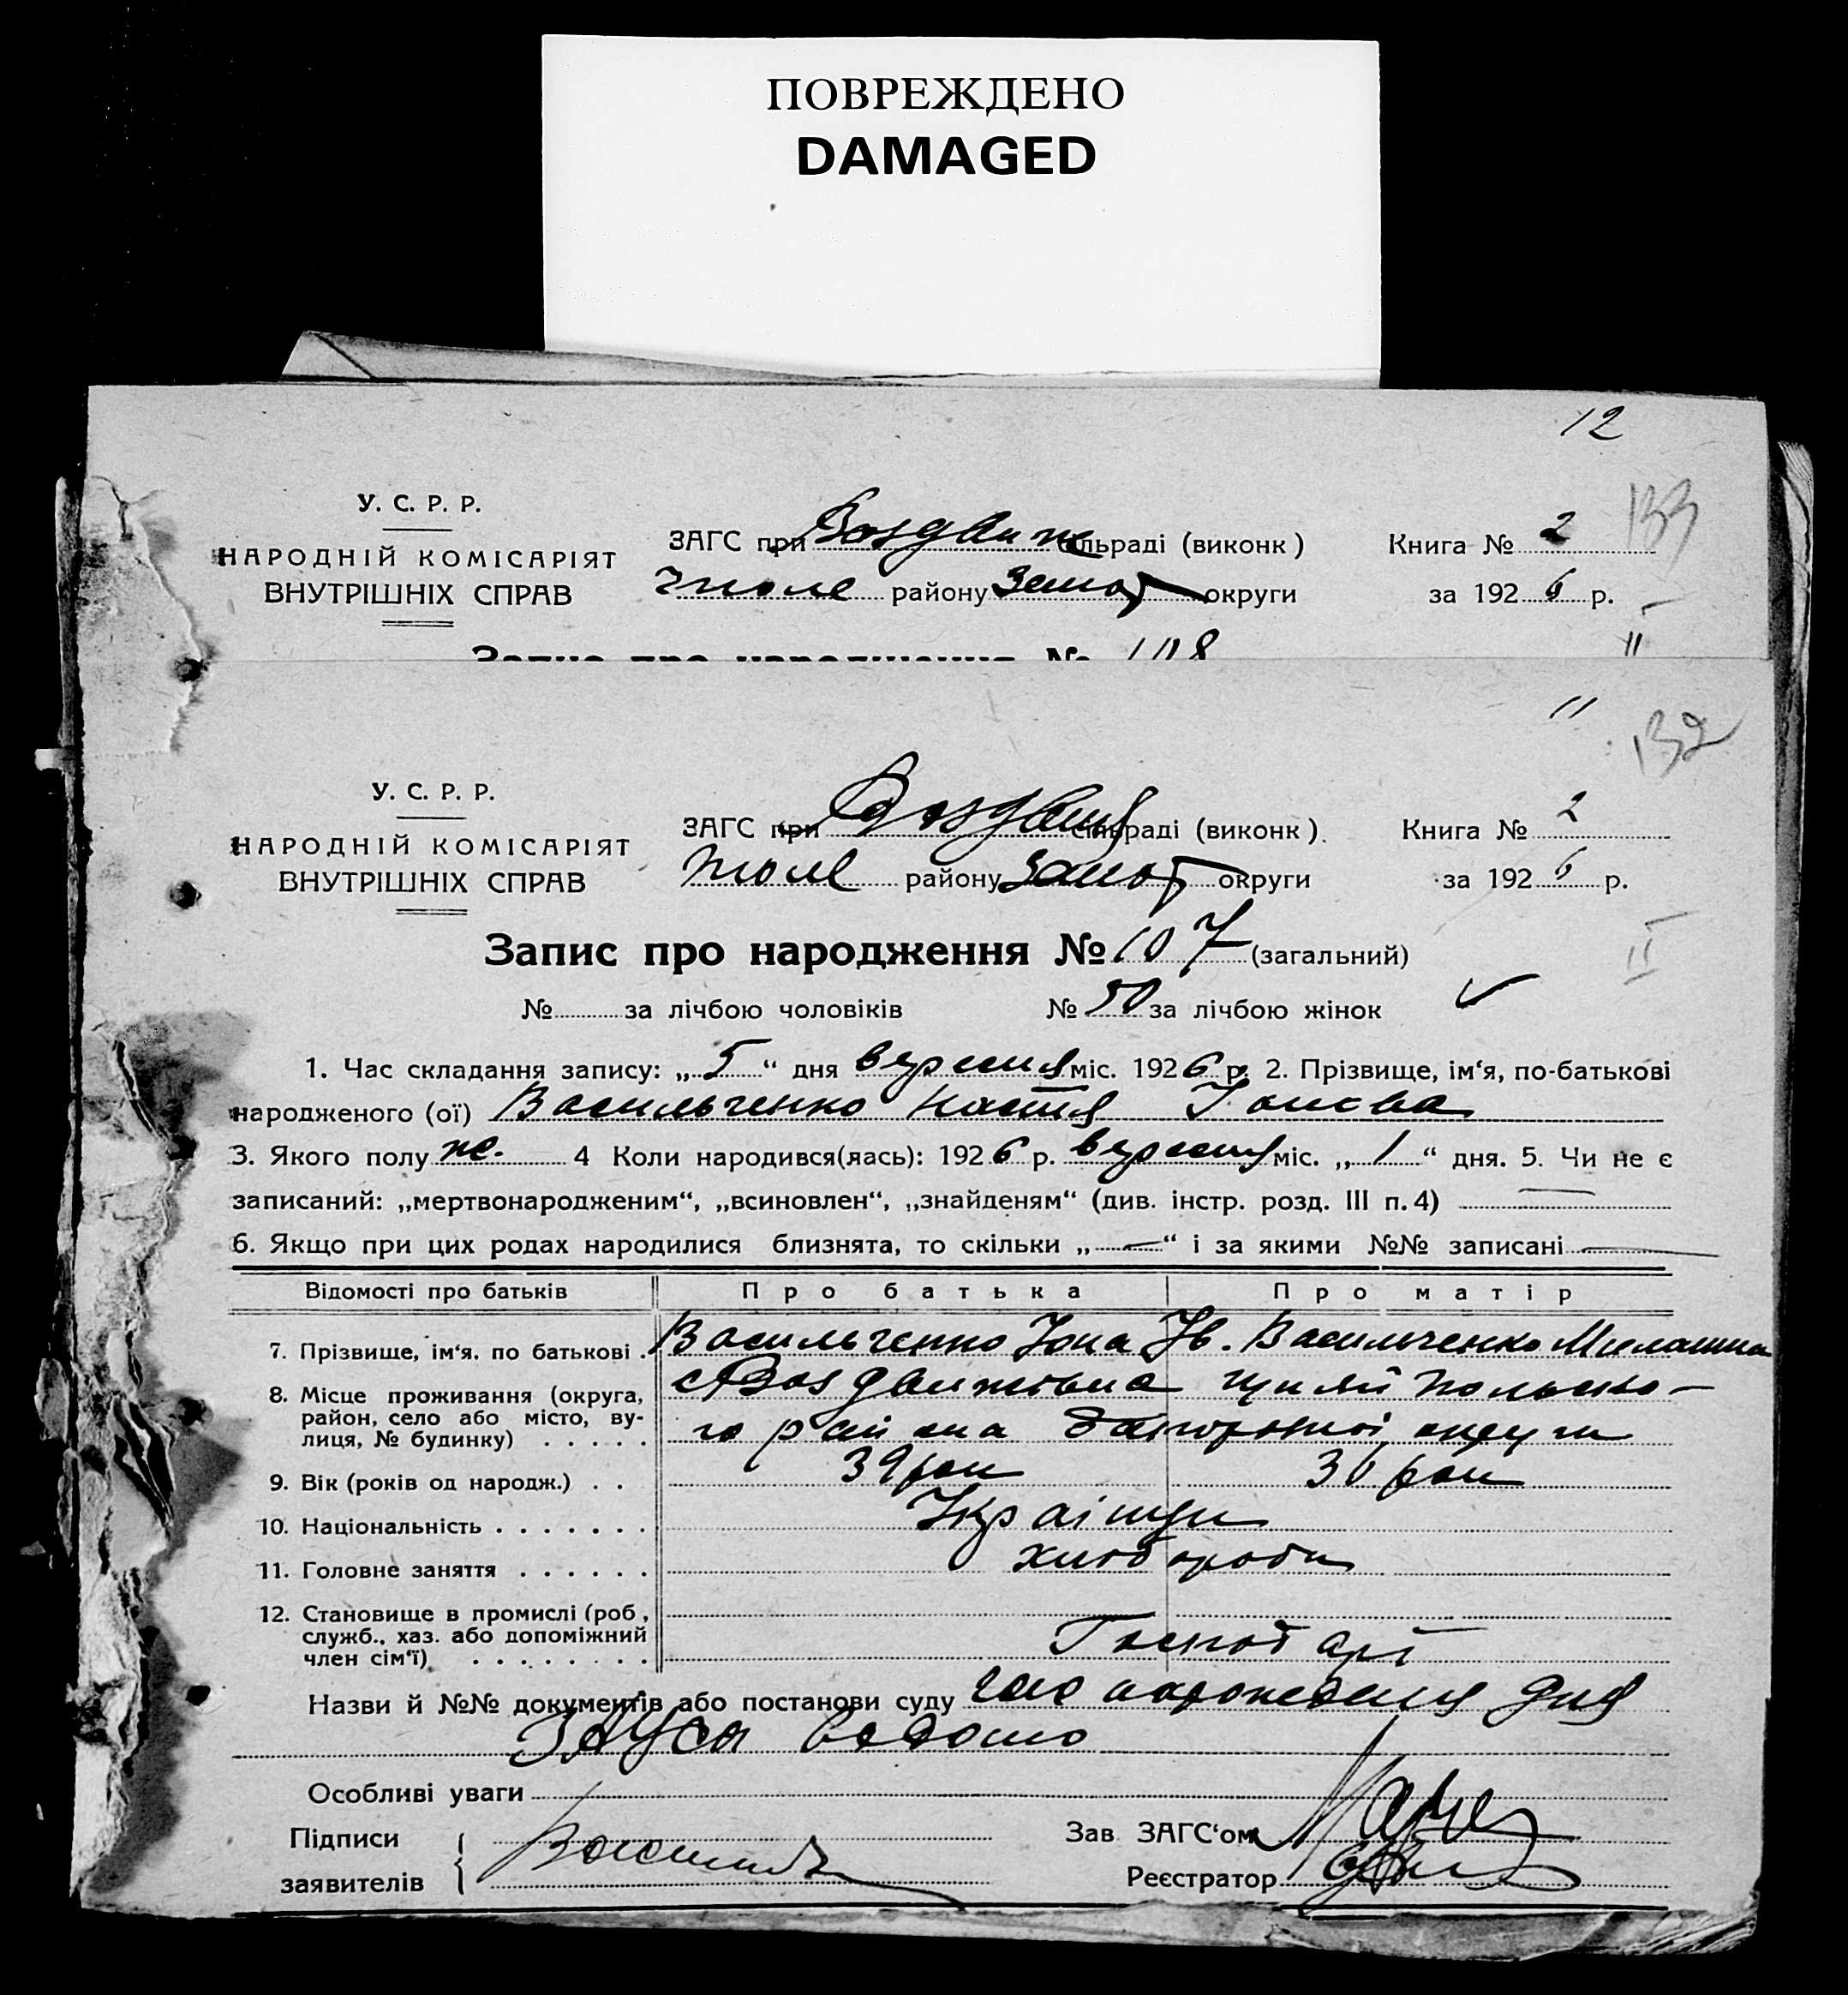 ПОВРЕЖДЕНО
DAMAGED
12
У. С. Р. Р.
НАРОДНІЙ КОМІСАРІЯТ
ВНУТРІШНІХ СПРАВ
ЗАГС при Воздвиж сільраді (виконк)
району Запор округи
Книга № 2
133
за 1926 р.
II
Запис про народження № 108
11
132
У. С. Р. Р.
НАРОДНІЙ КОМІСАРІЯТ
ВНУТРІШНІХ СПРАВ
ЗАГС при Воздвиж сільраді (виконк).
району Запор округи
Книга № 2
за 1926 р.
II
Запис про народження № 107 (загальний)
№ за лічбою чоловіків № 50 за лічбою жінок
1. Час складання запису: „5“ дня вересня міс. 1926 р. 2. Прізвище, ім‘я, по-батькові
народженого (ої) Васильченко Настя Іонова
3. Якого полу ж. 4 Коли народився(лась): 1926 р. вересня міс. „1“ дня. 5. Чи не є
записаний: „мертвонародженим“, „всиновлен“, „знайденям“ (див. інстр. розд. III п. 4) —
6. Якщо при цих родах народилися близнята, то скільки „—“ і за якими №№ записані —
Відомості про батьків Про батька Про матір
7. Прізвище, ім‘я, по батькові . Васильченко Іона Ів. Васильченко
8. Місце проживання (округа,
район, село або місто, ву-
лиця, № будинку) . . . . .
с Воздвижівка польсько-
го района округи
9. Вік (років од народж.) . . 39 рок 36 рок
10. Національність . . . . . . . Українци
11. Головне заняття . . . . . . хлібороби
12. Становище в промислі (роб,
служб., хаз. або допоміжний
член сім‘ї) . . . . . . . .
Господарі
Назви й №№ документів або постанови суду народження дня
ЗАГСы
Особливі уваги
Підписи
заявителів
Василь
Зав ЗАГС‘ом
Реєстратор